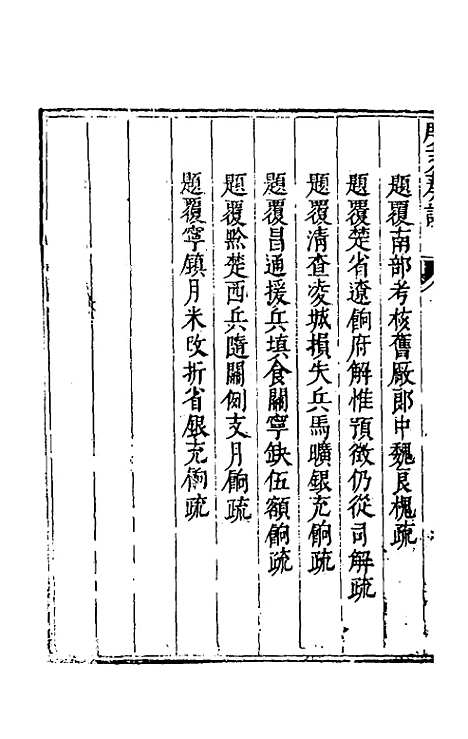 題覆南部考核舊廠郎中魏良槐疏
題覆楚省遼餉府解惟預徵仍從司解疏
題覆清查凌城損失兵馬曠銀充餉疏
題覆昌通援兵填食關寧缺伍額餉疏
題覆黔楚西兵隨關例支月餉疏
題覆寧鎮月米改折省銀充餉疏